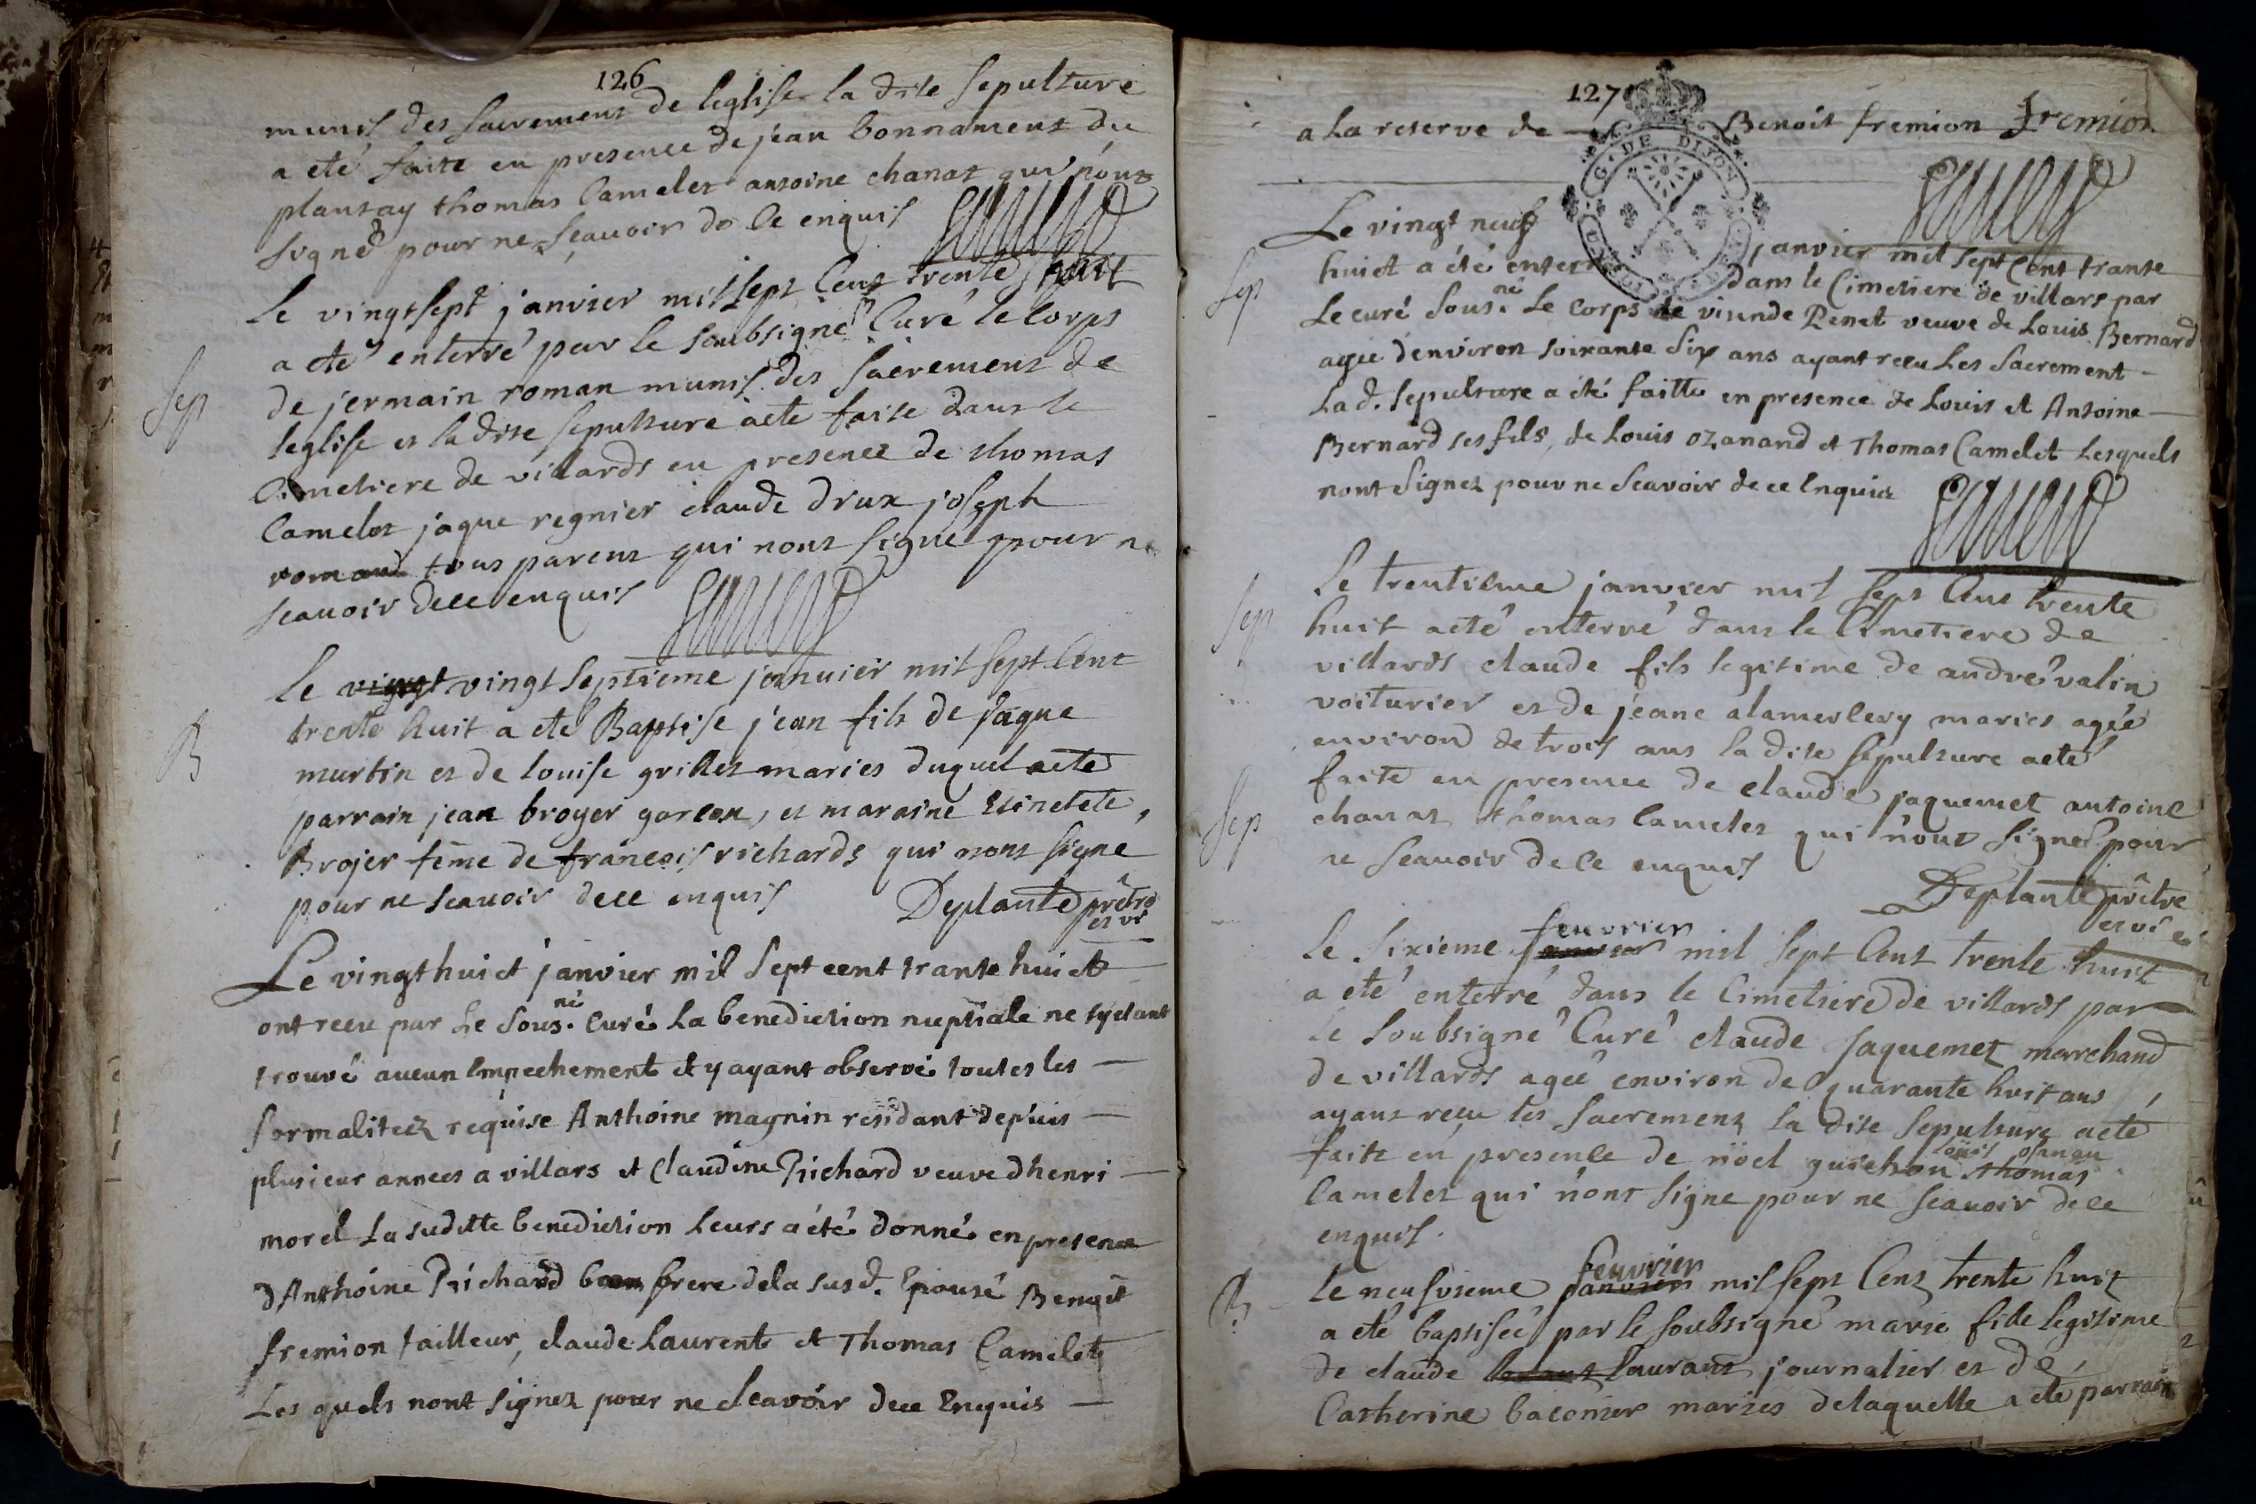 126
munis des sacrement de leglise la dite sepulture
a eté faite en presence de jean bonnament du
plantay thomas Camelet antoine chanat qui n'ont
signé pour ne sçauoir de ce enquis
Sep
le vingtsept janvier mil sept Cent trente huit
a eté enterré par le soubsigné Curé le Corps
de jermain roman munis des sacrement de
leglise et la dite sepulture a eté faite dans le
Cimetiere de villards en presence de thomas
Camelet jaque regnier claude drux joseph
romand tous parent qui nont signe pour ne
scauoir de ce enquis
B
le vingt vingt septieme januier mil sept Cent
trente huit a eté Baptise jean fils de jaque
murtin et de louise grillet maries duquel a eté
parrain jean broyer garcon, et maraine
Brojer féme de francois richards qui nont signé
pour ne scauoir de ce enquis Deplante prêtre
et vi
Le vingt huict janvier mil Sept cent trante huict
ont recu par Le Sous.né curé La benediction nuptiale ne sy etant
trouvé aucun Empechement et y ayant observé toutes les
formaliteez requise Anthoine magnin residant depuis
plusieur annees a villars et Claudine Prichard veuve d henri
morel La suditte benediction Leurs a été donné en presence
d Anthoine Prichard frere de la susd. Epousé Benoit
fremion tailleur, claude Laurent et Thomas Camelet
Les quels nont signez pour ne sceavoir de ce Enquis
127
a La reserve de Benoit fremion fremion
G. DE DIJON
Sep
Le vingt neuf janvier mil sept Cent trante
huict a été enterré dans le Cimetiere de villars par
Le curé Sous.né Le Corps de viunde Penet veuve de Louis Bernard
agée d'environ soixante Six ans ayant recu Les Sacrement
La d. Sepulture a été faitte en presence de Louis et Antoine
Bernard ses fils, de Louis ozanand et Thomas Camelet Lesquels
nont Signez pour ne Scavoir de ce Enquis
Sep
le trentieme janvier mil sept Cent trente
huit a eté enterré dans le Cimetiere de
villards claude fils legitime de andré valin
voiturier et de jeane alamerlery maries agée
environ de trois ans la dite sepulture a eté
faite en presence de claude jaquemet antoine
chanat thomas Camelet qui n'ont signes pour
ne scauoir de ce enquis
Deplante prêtre
et vi
Sep
feuvrier
le sixieme janvier mil sept Cent trente huit
a eté enterré dans le Cimetiere de villards par
le soubsigné Curé claude jaquemet marchand
de villards ageé environ de quarante huit ans
ayant reçu les sacremens la dite sepulture a eté
louis osanan
faite en presence de nöel guichon thomas
Camelet qui n'ont signe pour ne scauoir de ce
enquis.
B.
feuvrier
le neufvieme janvier mil sept Cent trente huit
a eté baptiseé par le soubsigné marie fille legitime
de claude laurant journalier et de
Catherine baconier maries de laquelle a eté parrain